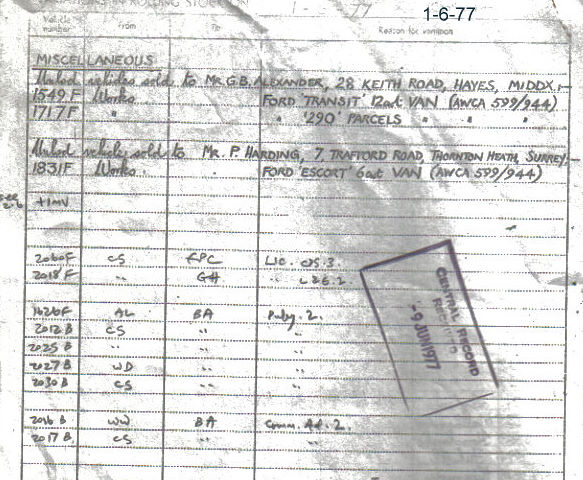 ROLLING STOCK
77
1-6-77
Vehicle number From To Reason for variation
MISCELLANEOUS
vehicles sold to MR. G.B. ALEXANDER, 28 KEITH ROAD, HAYES, MIDDX:-
1549 F Works FORD 'TRANSIT' 12cwt VAN (AWCA 599/944)
1717 F " " '290' PARCELS " " "
vehicle sold to MR. P. HARDING, 7, TRAFFORD ROAD, THORNTON HEATH, SURREY.
1831 F Works. FORD 'ESCORT' 6cwt VAN (AWCA 599/944)
+1MV
2060F CS FPC Lic. CS.3.
2018 F " GH "
1626F AL BA Puby. 2.
2012 B CS " "
2025 B " " "
2027 B WD " "
2030 B CS " "
2016 B WW BA Comm. Ad. 2.
2017 B, CS " "
CENTRAL RECORD
-9 JUN 1977